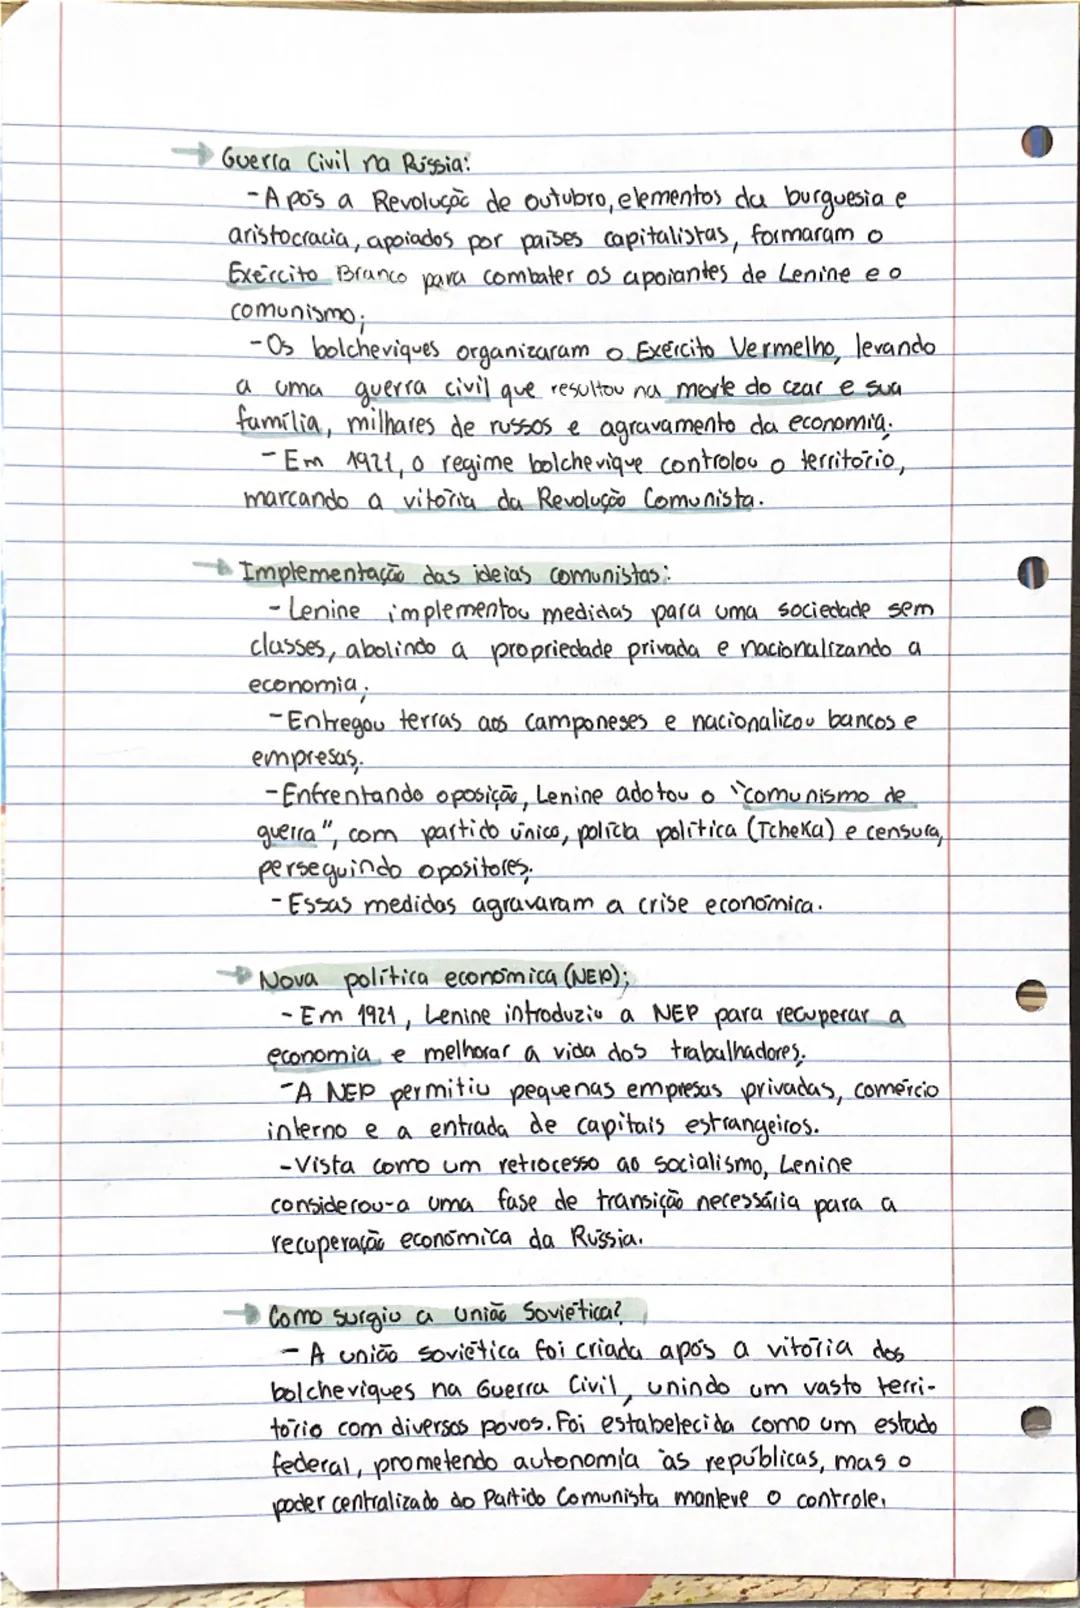 → Guerra Civil na Rússia:
- Após a Revolução de outubro, elementos da burguesia e
aristocracia, apoiados por países capitalistas, formaram o
Exército Branco para combater os apoiantes de Lenine e o
comunismo;
- Os bolcheviques organizaram o Exército Vermelho, levando
a uma guerra civil que resultou na morte do czar e sua
família, milhares de russos e agravamento da economia.
- Em 1921, o regime bolchevique controlou o território,
marcando a vitória da Revolução Comunista.
→ Implementação das ideias comunistas:
- Lenine implementou medidas para uma sociedade sem
classes, abolindo a propriedade privada e nacionalizando a
economia;
- Entregou terras aos camponeses e nacionalizou bancos e
empresas;
- Enfrentando oposição, Lenine adotou o "comunismo de
guerra", com partido único, polícia política (Tcheka) e censura,
perseguindo opositores;
- Essas medidas agravaram a crise económica.
→ Nova política económica (NEP);
- Em 1921, Lenine introduziu a NEP para recuperar a
economia e melhorar a vida dos trabalhadores;
- A NEP permitiu pequenas empresas privadas, comércio
interno e a entrada de capitais estrangeiros.
- Vista como um retrocesso ao socialismo, Lenine
considerou-a uma fase de transição necessária para a
recuperação económica da Rússia.
→ Como surgiu a união Soviética?
- A união soviética foi criada após a vitória dos
bolcheviques na Guerra Civil, unindo um vasto terri-
tório com diversos povos. Foi estabelecida como um estado
federal, prometendo autonomia às repúblicas, mas o
poder centralizado do Partido Comunista manteve o controle,